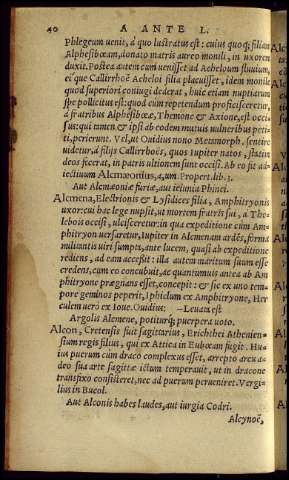 40 A ANTE L.
Phlegeum uenit, à quo lustratus est: cuius quoq; filiam
Alphesibœam, donato matris aureo monili, in uxorem
duxit. Postea autem cum uenisset ad Acheloum fluuium,
ei que Callirhoë Acheloi filia placuisset, idem monile
quod superiori coniugi dederat, huic etiam nuptiarum
spe pollicitus est: quod cum repetendum proficisceretur,
à fratribus Alphesibœæ, Themone & Axione, est occi
sus: qui tamen & ipsi ab eodem mutuis uulneribus peti-
ti, perierunt. Vel, ut Ouidius nono Metamorph. sentire
uidetur, à filijs Callirhoës, quos Iupiter natos, statim
deos fecerat, in patris ultionem sunt occisi. Ab eo sit ad-
iectiuum Alcmæonius, a, um. Propert. lib. 3.
Aut Alcmæoniæ furiæ, aut ieiunia Phinei.
Alcmena, Electrionis & Lysidices filia, Amphitryonis
uxor: cui hac lege nupsit, ut mortem fratris sui, a The-
lebois occisi, ulcisceretur: in qua expeditione cum Am-
phitryon uersaretur, Iupiter in Alcmenam ardēs, forma
militantis uiri sumpta, ante lucem, quasi ab expeditione
rediens, ad eam accessit: illa autem maritum suum esse
credens, cum eo concubuit, ac quantumuis antea ab Am
phitryone prægnans esset, concepit: & sic ex uno tem-
pore geminos peperit, Iphiclum ex Amphitryone, Her
culem uerò ex Ioue. Ouidius: —Leuata est
Argolis Alcmene, potiturq; puerpera uoto.
Alcon, Cretensis fuit sagittarius, Erichthei Athenien-
sium regis filius, qui ex Attica in Eubœam fugit. Hu-
ius puerum cum draco complexus esset, arrepto arcu a-
deo sua arte sagittæ ictum temperauit, ut in dracone
transfixo consisteret, nec ad puerum perueniret. Vergi-
lius in Bucol.
Aut Alconis habes laudes, aut iurgia Codri.
Alcynoë,